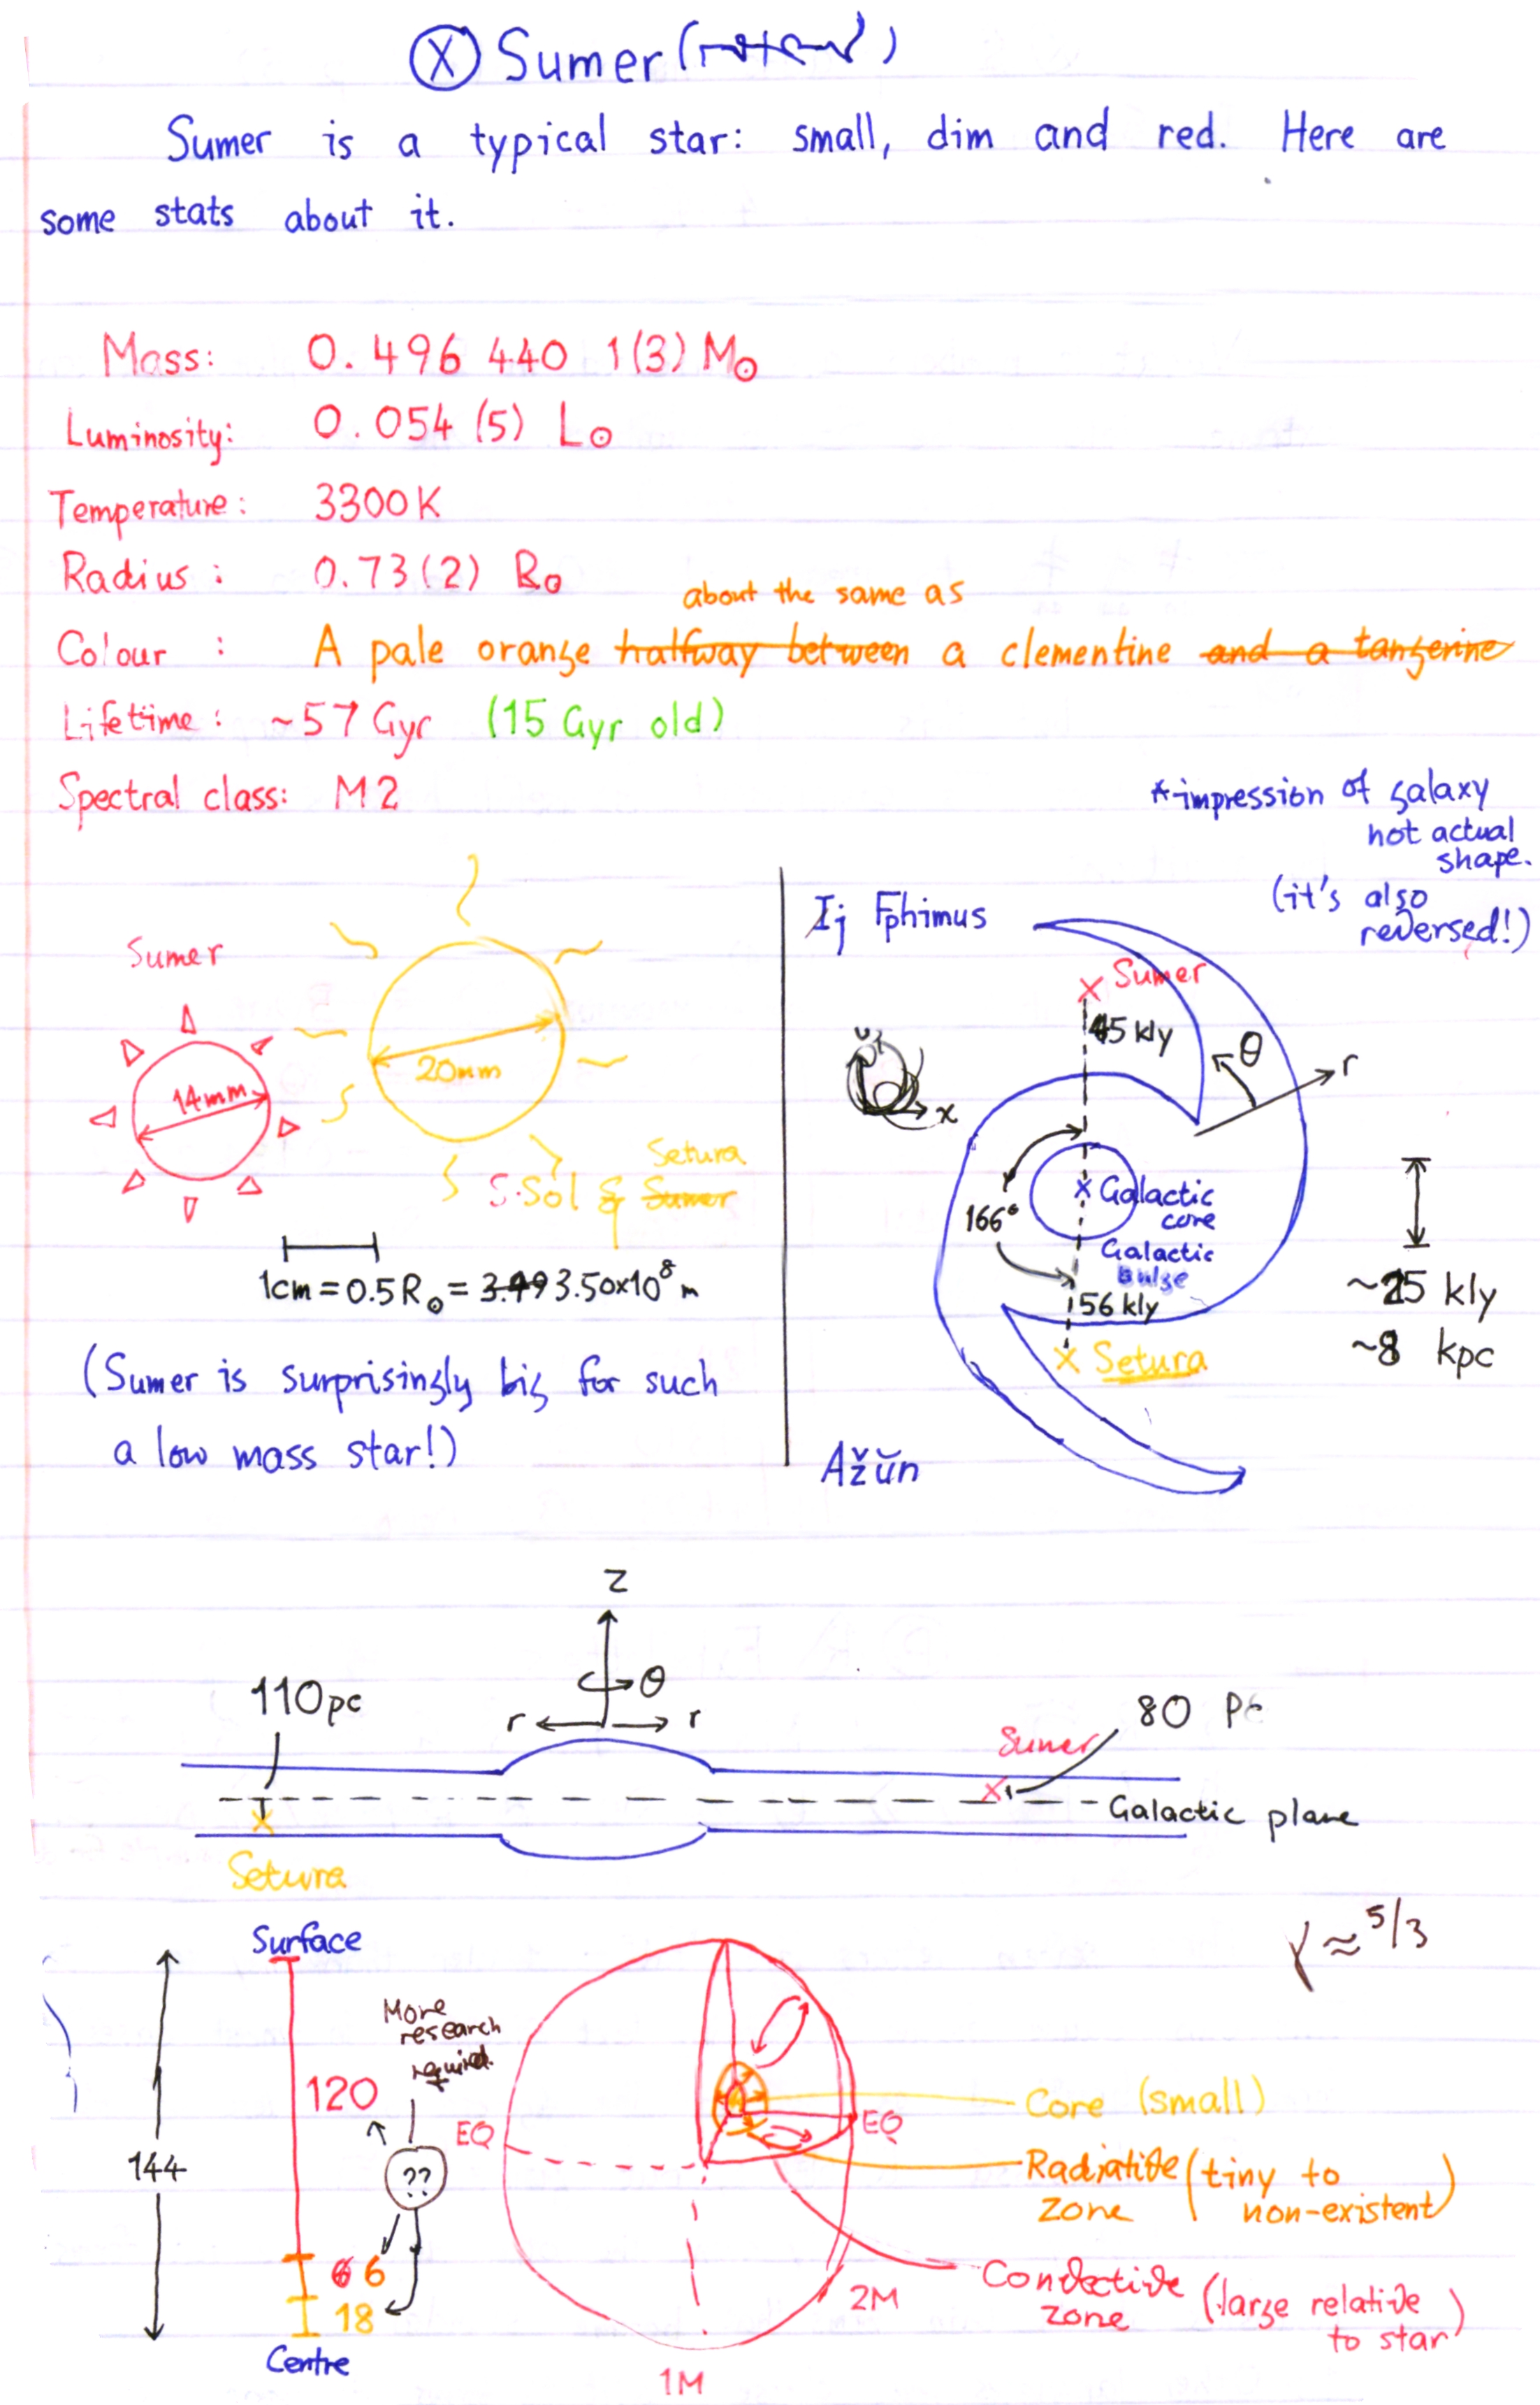 Ⓧ Sumer (
Sumer is a typical star: small, dim and red. Here are
some stats about it.
Mass: 0.496 440 1(3) M☉
Luminosity: 0.054 (5) L☉
Temperature: 3300 K
Radius: 0.73(2) R☉
about the same as
Colour : A pale orange halfway between a clementine and a tangerine
Lifetime: ~57 Gyr (15 Gyr old)
Spectral class: M2
*impression of galaxy
not actual
shape.
(it's also
reversed!)
Sumer
14mm
20mm
Setura
S. Sol & Sumer
1cm = 0.5 R☉ = 3.49 3.50x10⁸ m
(Sumer is surprisingly big for such
a low mass star!)
Ij Fphimus
Sumer
45 kly
θ
r
x
166°
Galactic
core
Galactic
bulge
56 kly
Setura
~25 kly
~8 kpc
Ažŭn
z
θ
r r
110pc
80 pc
Sumer
Galactic plane
Setura
γ ≈ 5/3
Surface
More
research
required.
120
144
??
6 6
18
Centre
EQ
EQ
1M
2M
Core (small)
Radiative (tiny to
zone non-existent)
Convective (large relative
zone to star)